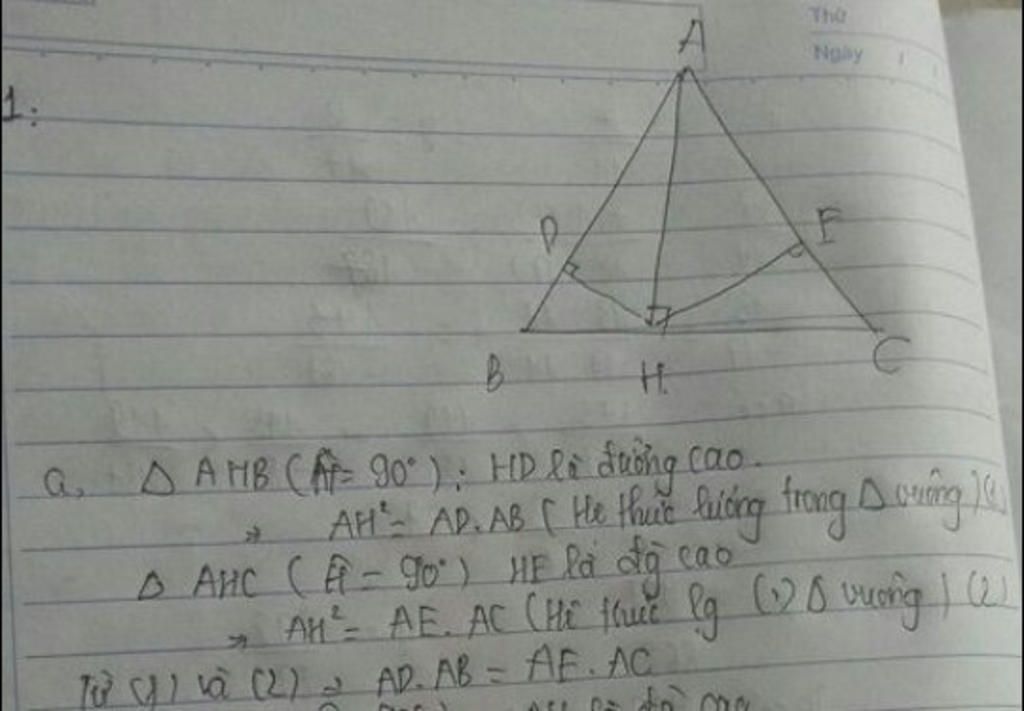 Thứ
Ngày
1:
A
D
E
B
H.
C
a, Δ AHB (Ĥ = 90°): HD là đường cao.
⇒ AH² = AD. AB (Hệ thức lượng trong Δ vuông) (1)
Δ AHC (Ĥ = 90°) HE là đg cao
⇒ AH² = AE. AC (Hệ thức lg (1) Δ vuông) (2)
Từ (1) và (2) ⇒ AD. AB = AE. AC
AH là đg cao